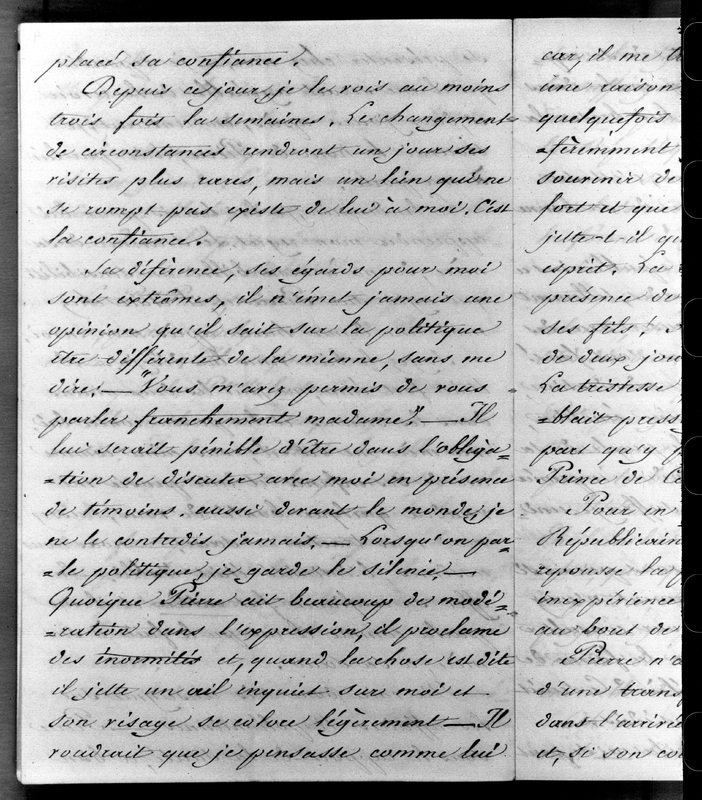 placé sa confiance.
Depuis ce jour, je le vois au moins
trois fois la semaines. Le changement
de circonstances rendront un jour ses
visites plus rares, mais un lien qui ne
se rompt pas existe de lui à moi. C'est
la confiance.
Sa déférence, ses égards pour moi
sont extrêmes, il n'émet jamais une
opinion qu'il sait sur la politique
être différente de la mienne, sans me
dire: — "Vous m'avez permis de vous
parler franchement madame". — Il
lui serait pénible d'être dans l'obliga=
=tion de discuter avec moi en présence
de témoins. aussi devant le monde, je
ne le contredis jamais. — Lorsqu'on par=
=le politique, je garde le silence. —
Quoique Pierre ait beaucoup de modé=
=ration dans l'expression, il proclame
des énormités et, quand la chose est dite
il jette un œil inquiet sur moi et
son visage se colore légèrement — Il
voudrait que je pensasse comme lui
car, il me
une raison
quelquefois
=férimment
souvenir de
fort et que
jette-t-il
esprit. La
présence de
ses fils!
de deux
La tristesse
=blait
part qu'y
Prince de
Pour en
Républicain
repousse la
inexpérience
au bout de
Pierre
d'une
dans
et, si son